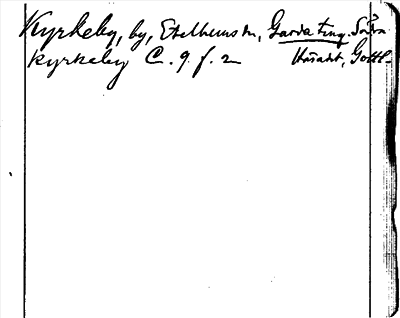 Kyrkeby, by, Etelhems sn, Garda ting, Södra
Kyrkeby C. 9. f. 2 Häradet, Gottl.